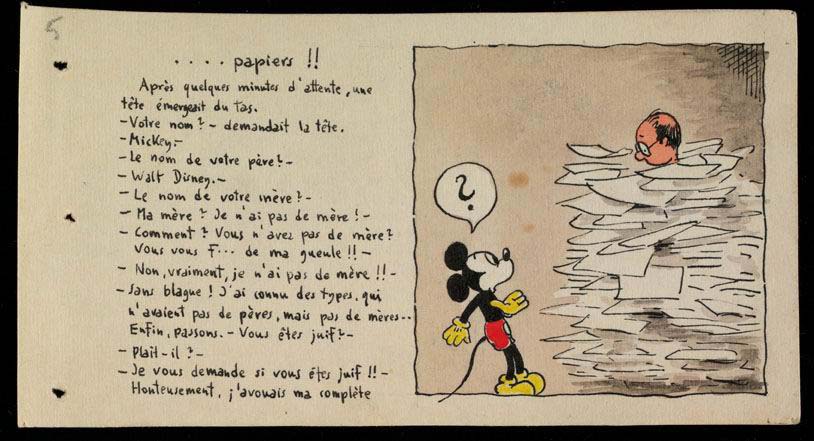 5
.... papiers !!
Après quelques minutes d'attente, une
tête émergeait du tas.
- Votre nom? - demandait la tête.
- Mickey.-
- Le nom de votre père?-
- Walt Disney.-
- Le nom de votre mère?-
- Ma mère? Je n'ai pas de mère!-
- Comment? Vous n'avez pas de mère?
Vous vous f... de ma gueule!!-
- Non, vraiment, je n'ai pas de mère!!-
- Sans blague! J'ai connu des types, qui
n'avaient pas de pères, mais pas de mères..
Enfin, passons.- Vous êtes juif?-
- Plait-il?-
- Je vous demande si vous êtes juif!!-
Honteusement, j'avouais ma complète
?